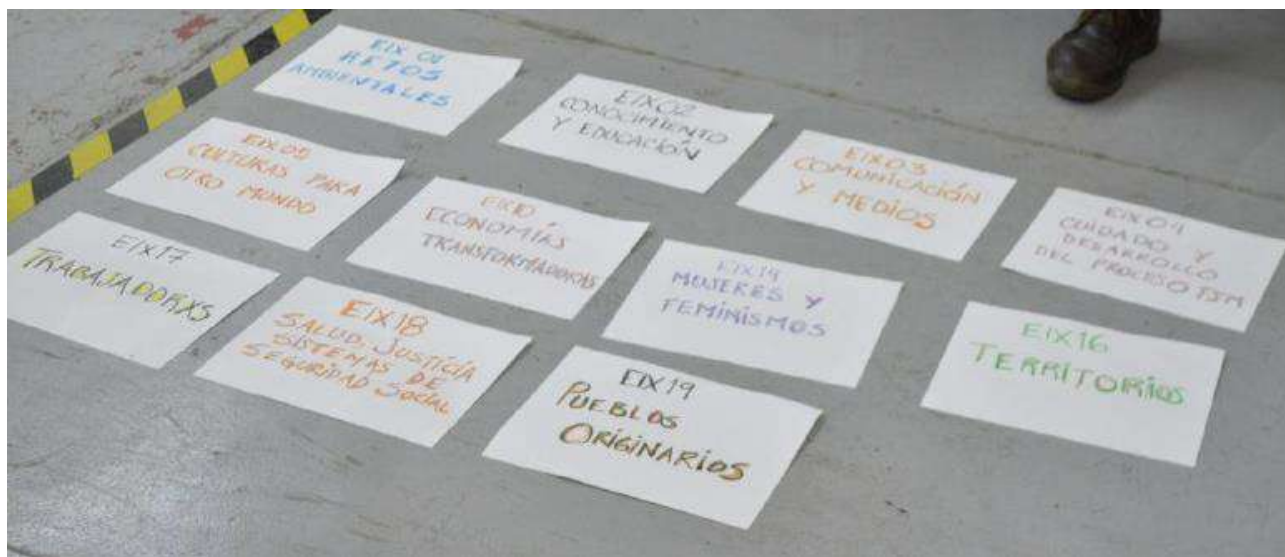 EIX 01
RETOS
AMBIENTALES
EIX02
CONOCIMIENTO
Y EDUCACIÓN
EIX03
COMUNICACIÓN
Y MEDIOS
EIX04
CUIDADO Y
DESARROLLO
DEL PROCESO FSM
EIX05
CULTURAS PARA
OTRO MONDO
EIX10
ECONOMÍAS
TRANSFORMADORAS
EIX14
MUJERES Y
FEMINISMOS
EIX16
TERRITORIOS
EIX17
TRABAJADORXS
EIX18
SALUD, JUSTICIA
SISTEMAS DE
SEGURIDAD SOCIAL
EIX19
PUEBLOS
ORIGINARIOS